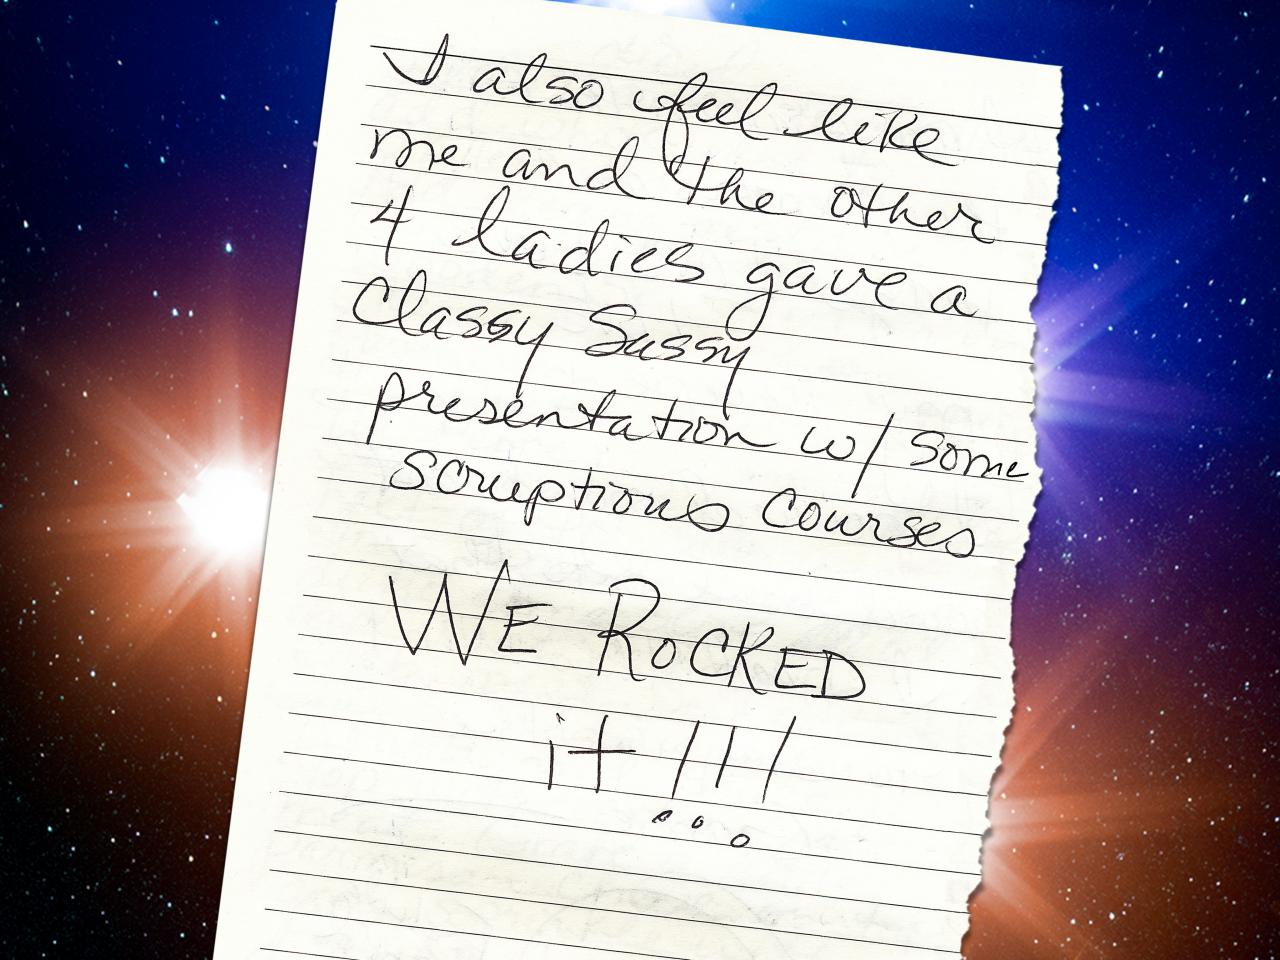 I also feel like
me and the other
4 ladies gave a
Classy Sassy
presentation w/ some
scruptious courses
WE ROCKED
it!!!